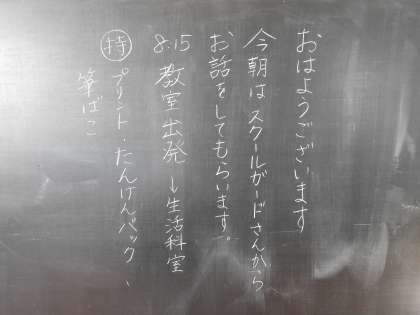 おはようございます
今朝はスクールガードさんから
お話をしてもらいます。
8:15 教室出発→生活科室
持 プリント・たんけんバック、
筆ばこ